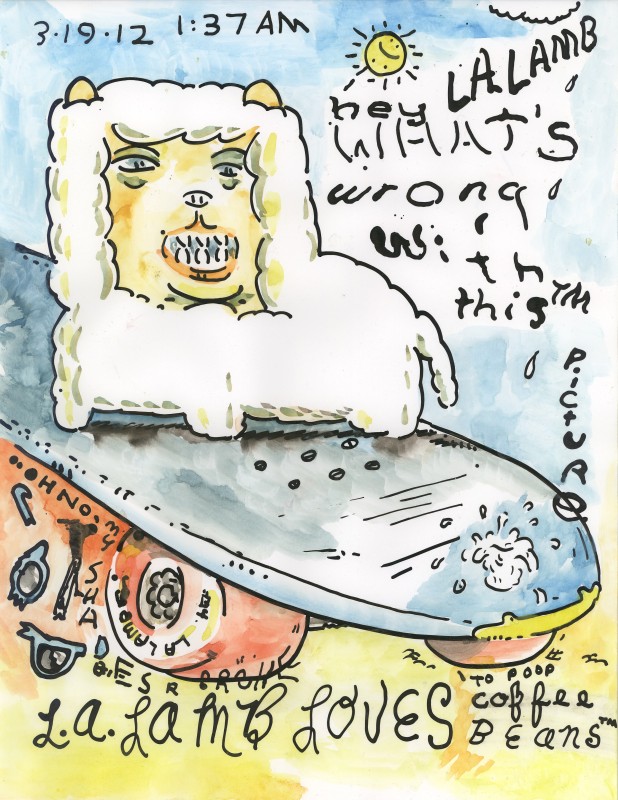 3·19·12 1:37AM
hey L.A. LAMB
WHAT'S
wrong
with
this™
PicTURE
OOOH NO. MY
SHADES R BROKE
L.A. LAMB
L.A. LAMB LOVES
TO POOP
coffee
BEANS™